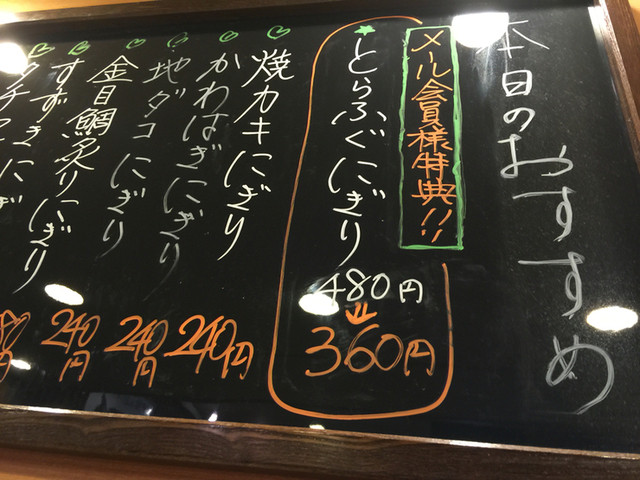 本日のおすすめ
メール会員様特典!!
とらふぐにぎり
480円
⇓
360円
焼カキにぎり
かわはぎにぎり
地ダコにぎり
金目鯛炙りにぎり
すずきにぎり
240円
240円
240円